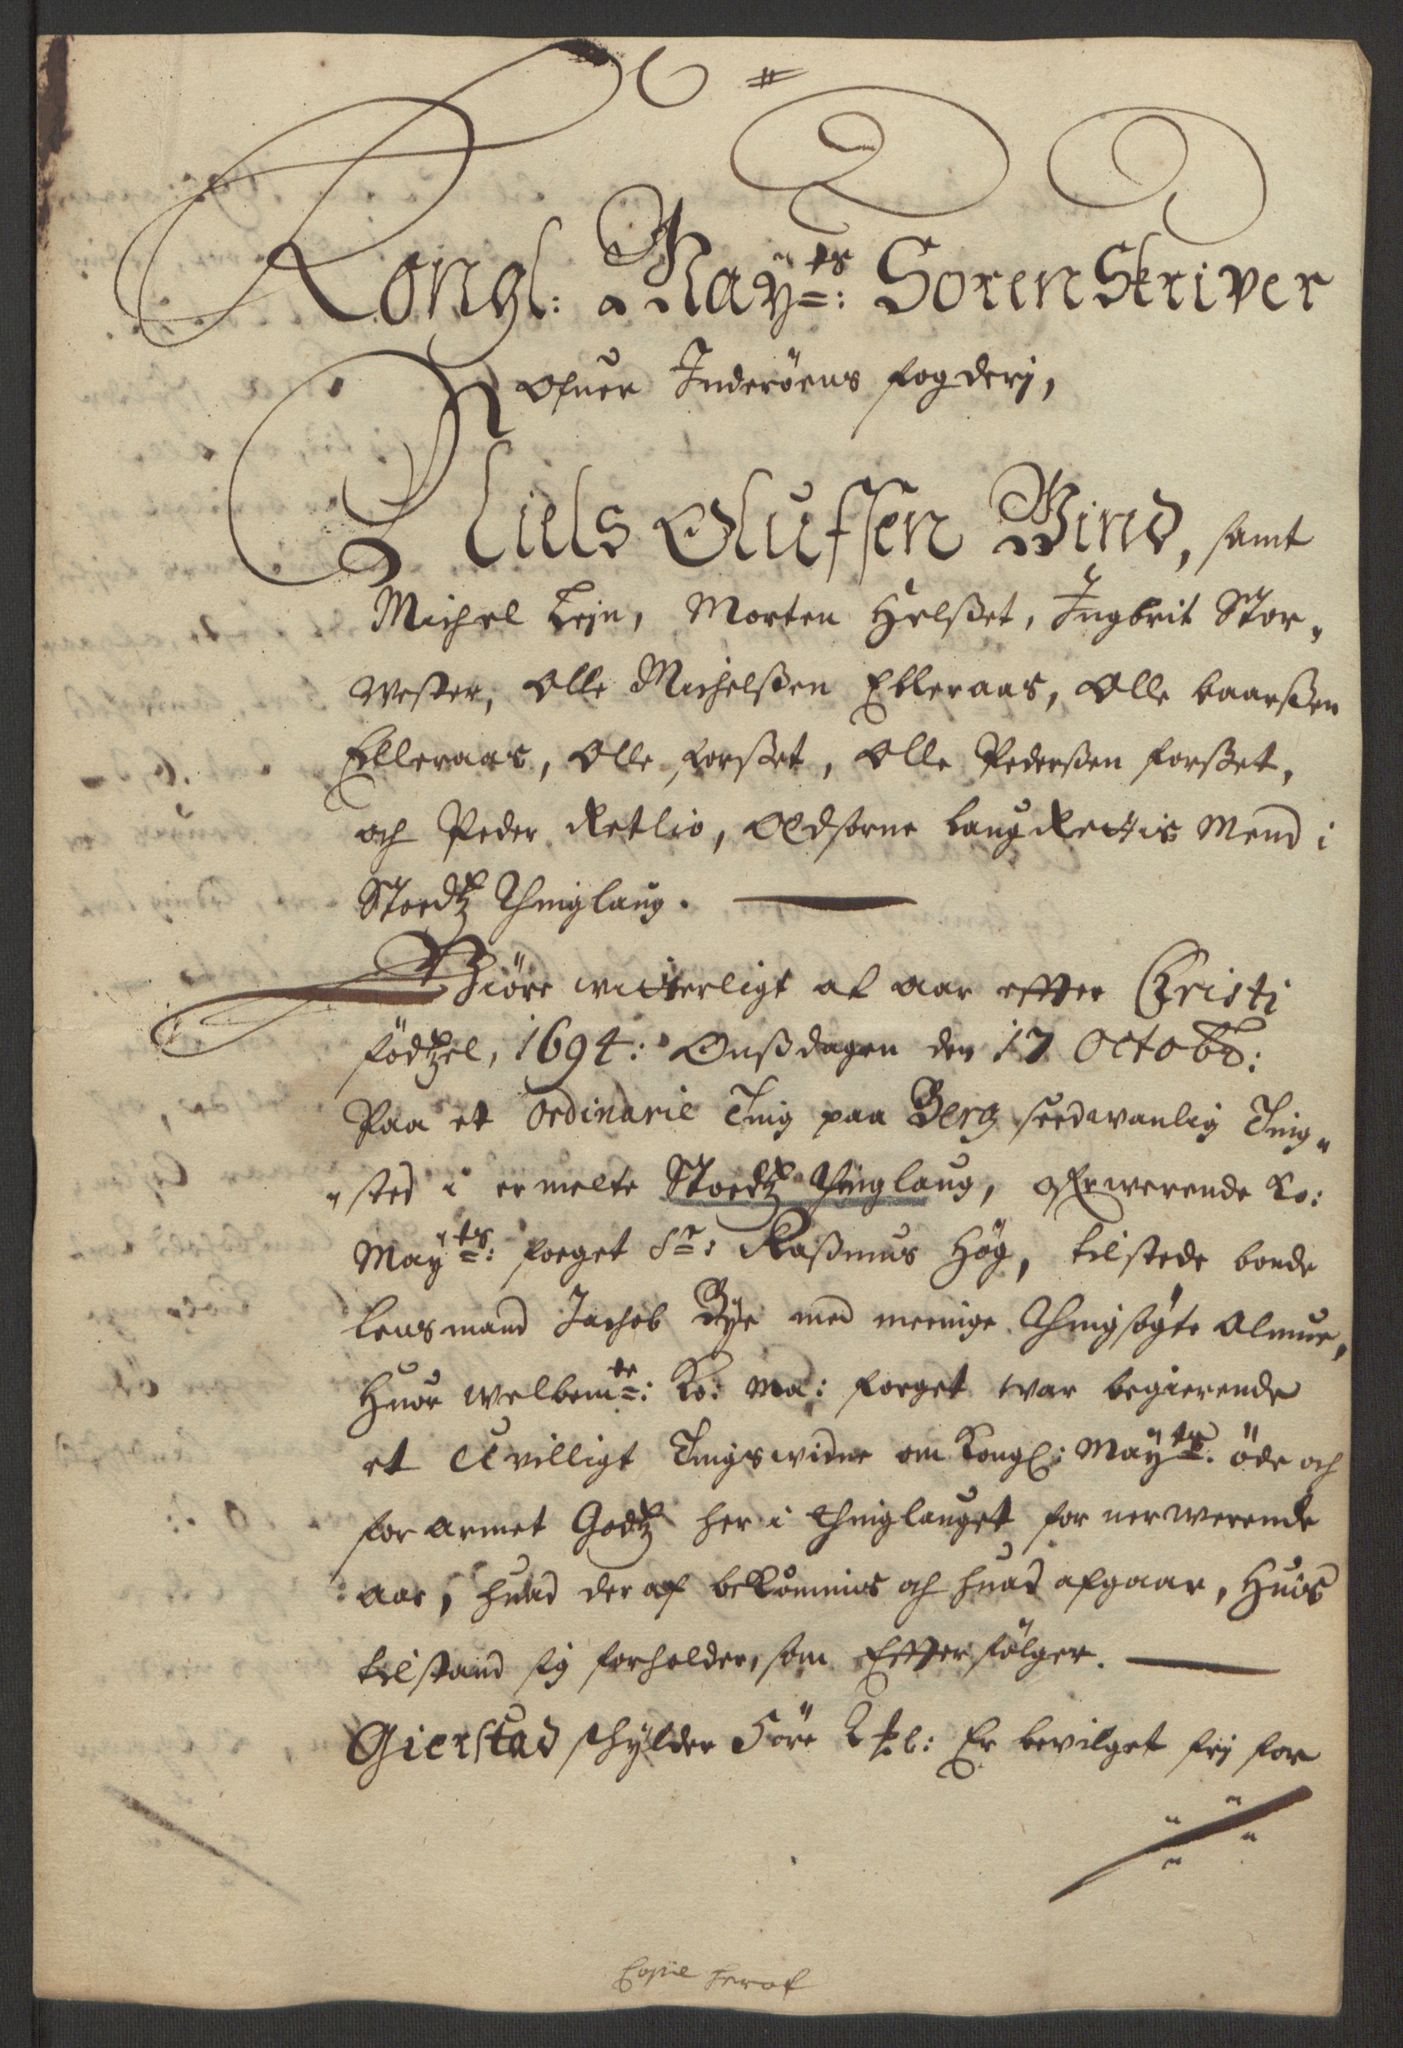 Kongl: Mayts: Soren Skriver
Ofuer Inderöens fogderj,
Niels Olufssen Wind, samt
Michel Lejn, Morten Helßet, Ingbrit Stor-
wester, Olle Michelßen Elleraas, Olle baarßen
Elleraas, Olle forßet, Olle Pederßen forßet,
och Peder Retlio, Edsorne LaugRettis Mend i
Stordtz Thinglaug.
Giöre witterligt at aar effter Christi
födtzel, 1694: Onßdagen den 17 Octobr:
Paa et Ordinarie Ting paa Berg sædwanlig Ting-
sted i ermelte Stordtz Thinglaug, offwerwerende Ko:
Mayts: foeget Sr: Raßmus Hög, tilstede bonde
Lensmand Jachob Bye med meenige Thingsögte Almue,
Huor welbemte: Ko: Ma: foeget war begierende
et Uvilligt Tingswidne om Kongl: Mayts: öde och
forarmet Godtz her i Thinglauget for nerwerende
aar, huad deraf bekommis och huad afgaar, Huis
tilstand sig forholder, som Effterfölger.
Gierstad schylder Söre 2 spl: Er bevilget frj for
Copie heraf